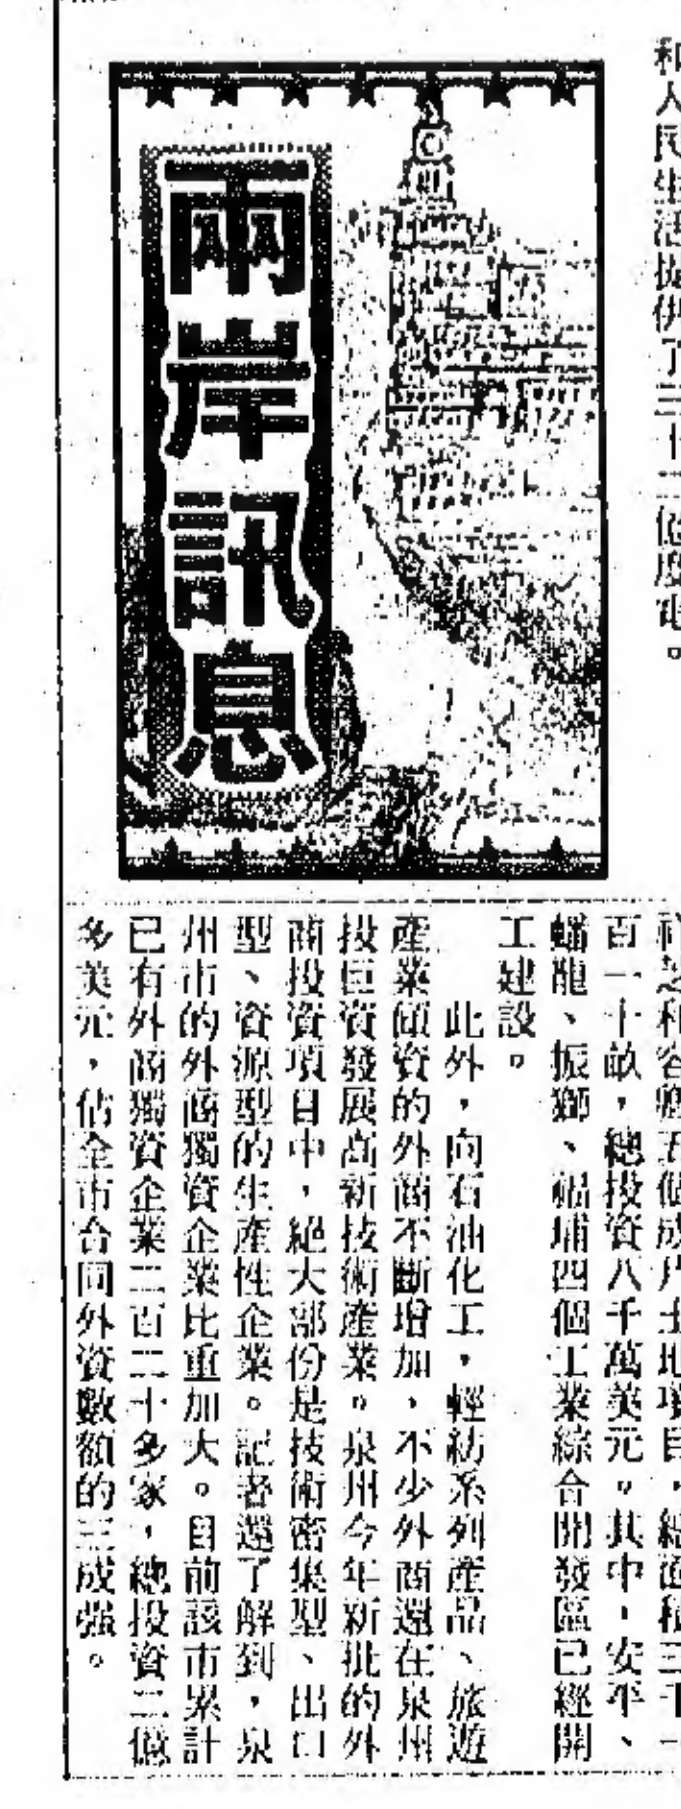 和人民生活提供了三十二億度電。
兩岸訊息
和容卿五個成片土地項目，總面積三千一
百一十畝，總投資八千萬美元。其中，安平、
蟠龍、振獅、福埔四個工業綜合開發區已經開
工建設。
此外，向石油化工，輕紡系列產品、旅遊
產業傾資的外商不斷增加，不少外商還在泉州
投巨資發展高新技術產業。泉州今年新批的外
商投資項目中，絕大部份是技術密集型、出口
型、資源型的生產性企業。記者還了解到，泉
州市的外商獨資企業比重加大。目前該市累計
已有外商獨資企業二百二十多家，總投資二億
多美元，佔全市合同外資數額的三成強。